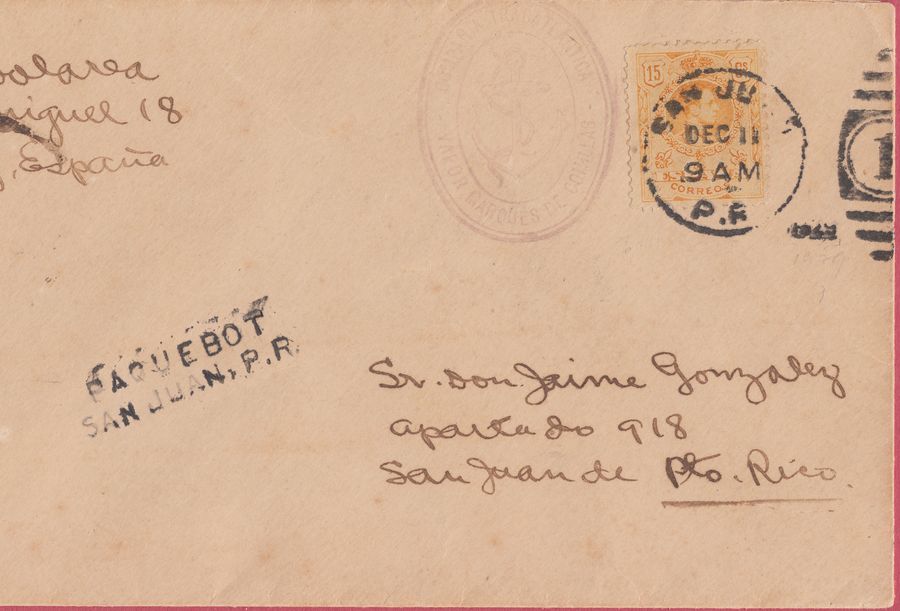 18
España
VAPOR MARQUES DE COMILLAS
15 CS
CORREOS
SAN JU
DEC 11
9 AM
P.R.
1
PAQUEBOT
SAN JUAN, P.R.
Sr. Don Jaime Gonzalez
apartado 918
San Juan de Pto. Rico.